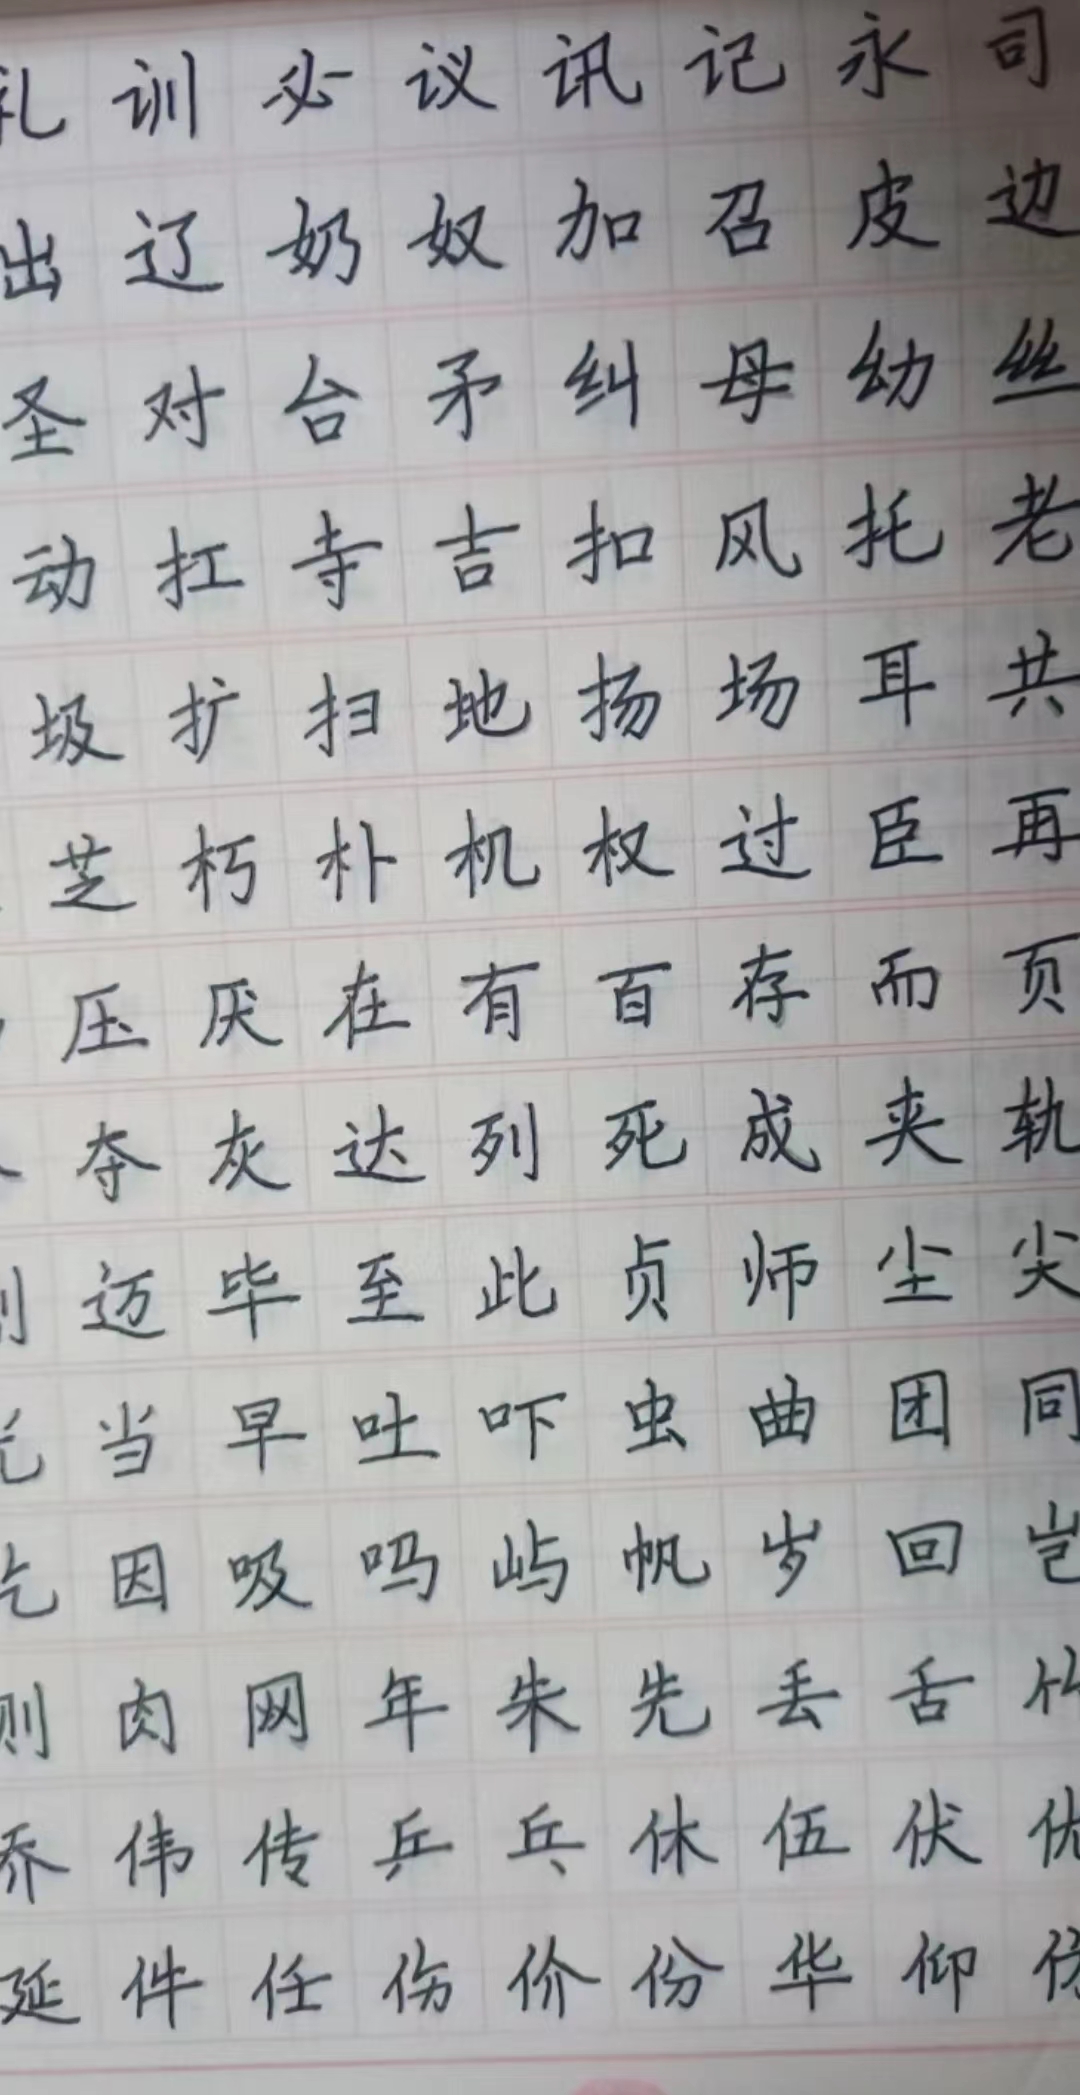 礼训必议讯记永司
出辽奶奴加召皮边
圣对台矛纠母幼丝
动扛寺吉扣风托老
圾扩扫地扬场耳共
芝朽朴机权过臣再
压厌在有百存而页
夺灰达列死成夹轨
划迈毕至此贞师尘尖
光当早吐吓虫曲团同
吃因吸吗屿帆岁回岂
则肉网年朱先丢舌竹
乔伟传乒乓休伍伏优
延件任伤价份华仰仿